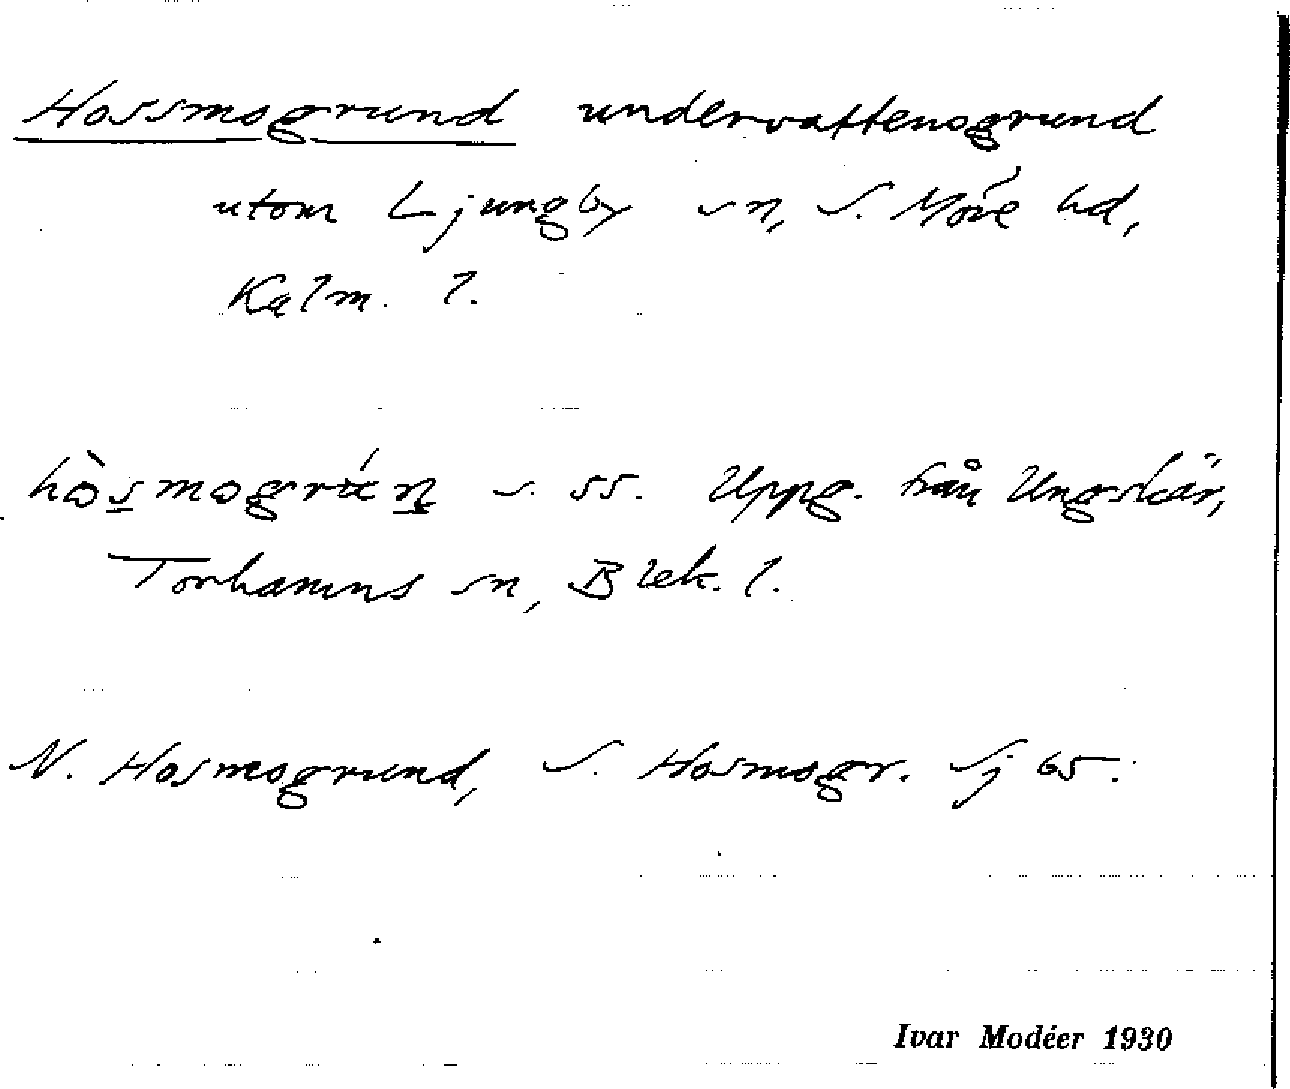 Hossmogrund undervattensgrund
utom Ljungby sn, S. Möre hd,
Kalm. l.
s. ss. Uppg. från Ungskär,
Torhamns sn, Blek. l.
N. Hosmogrund, S. Hosmogr. Sj 65.
Ivar Modéer 1930